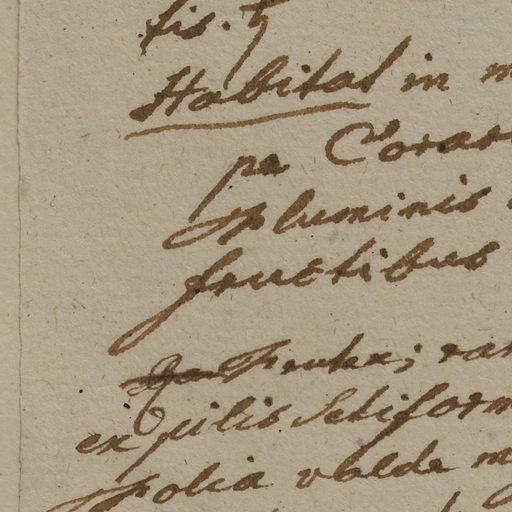 tis. ♄
Habitat in m
pa Corar
Fluminis
fructibus
Frutex; ram
ex pilis setiform
Folia valde m